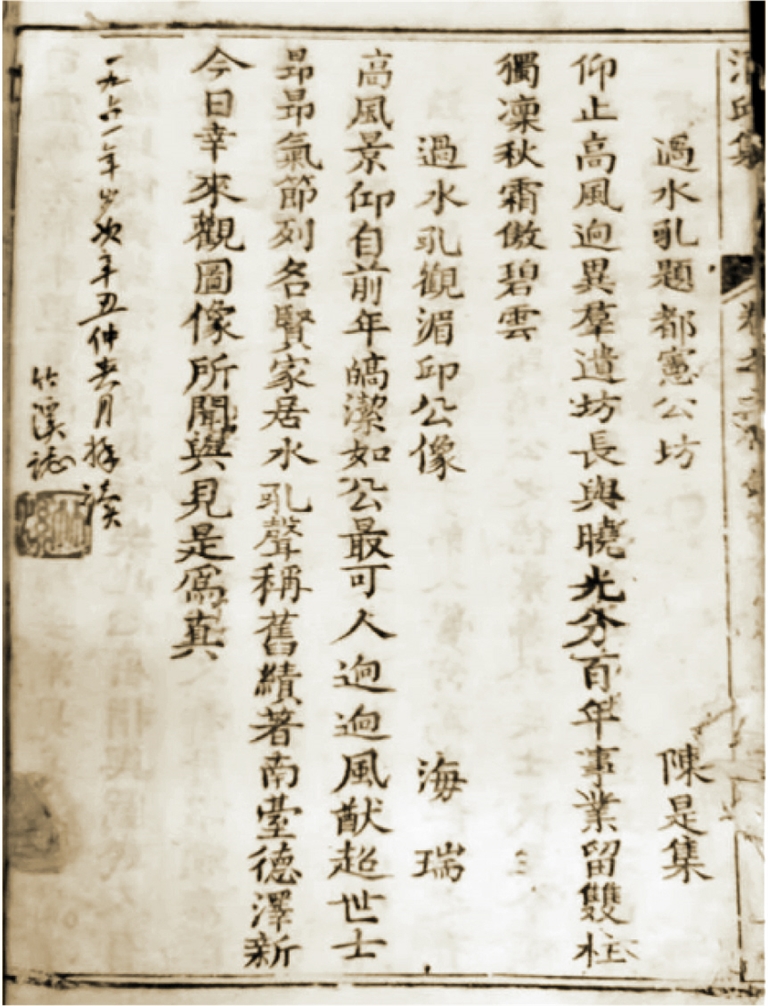 過水乳題都憲公坊　陳是集
仰止高風迥異羣遺坊長與曉光分百年事業留雙柱
獨凜秋霜傲碧雲
過水乳觀湄邱公像　海瑞
高風景仰自前年皜潔如公最可人迥迥風猷超世士
昴昴氣節列名賢家居水乳聲稱舊績著南臺德澤新
今日幸來觀圖像所聞與見是爲真
一九六一年歲次辛丑仲春月拜讀
竹溪誌